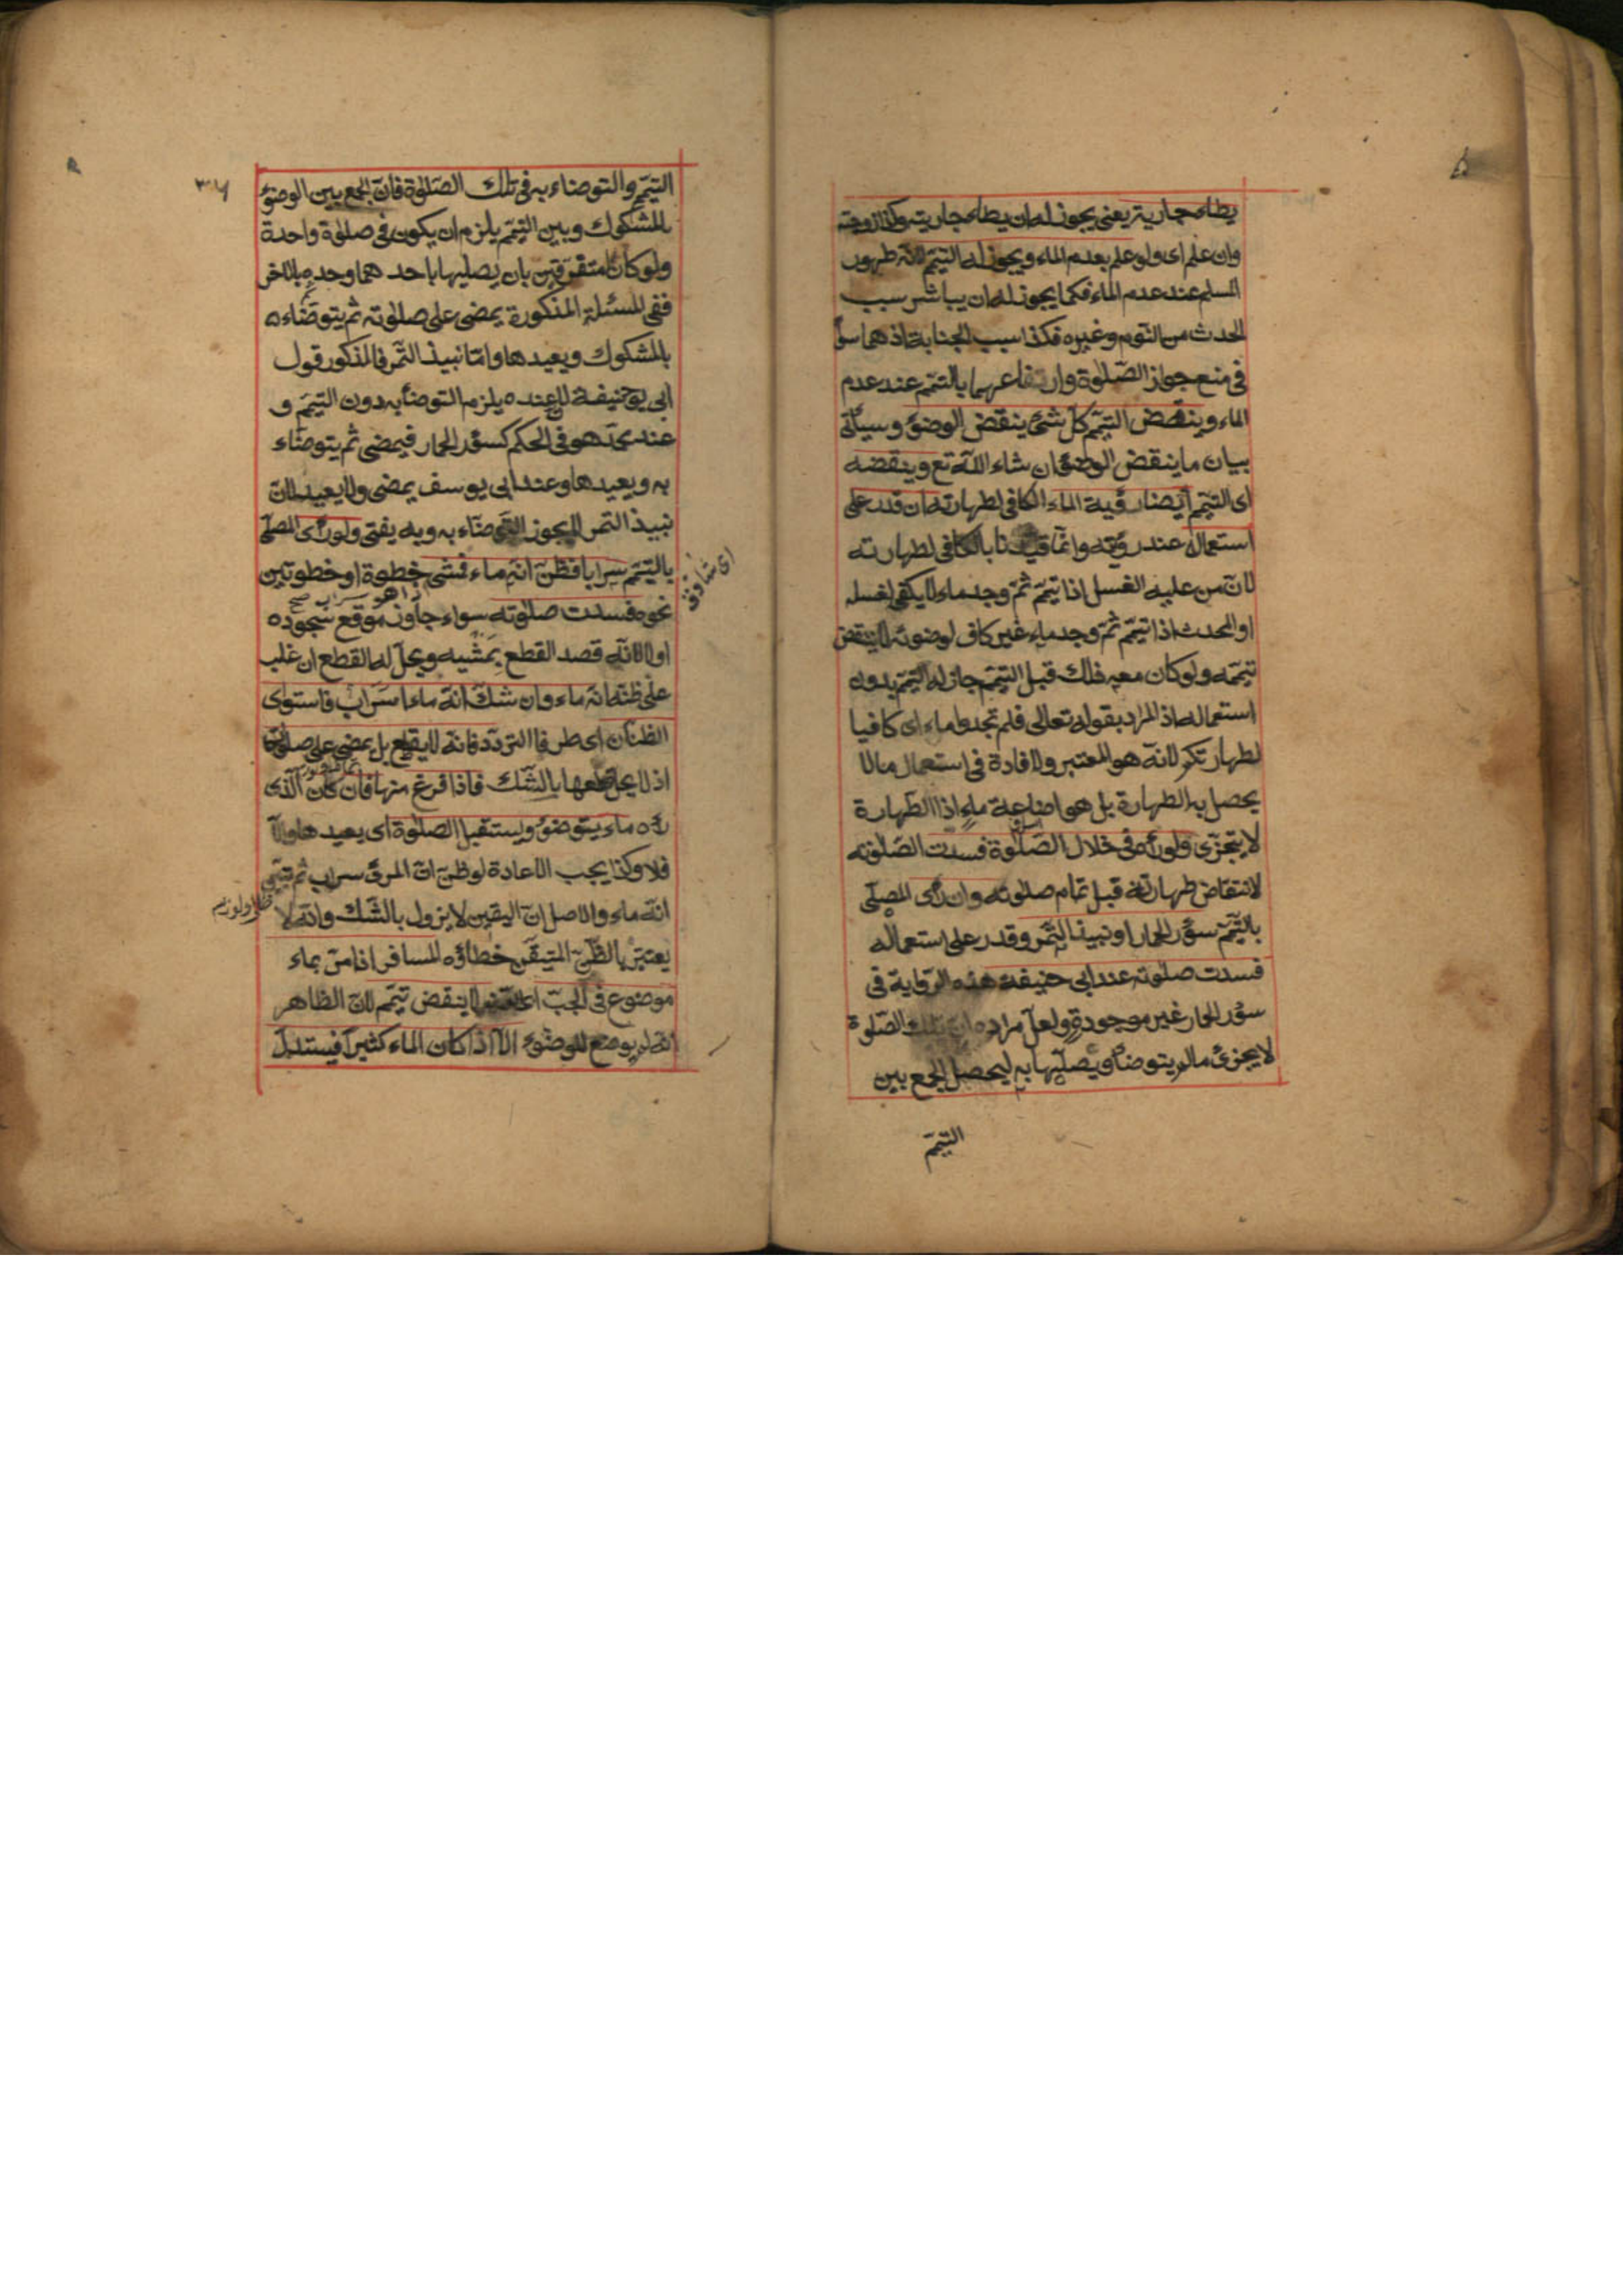 يطاء جاريته يعنى يجوز له ان يطاء جاريته وكذا زوجته
وان علم اى ولو علم بعدم الماء ويجوز له التيمّم لانّه طهور
المسلم عند عدم الماء فكما يجوز له ان يباشر سبب
الحدث من النّوم وغيره فكذا سبب الجنابة اذ هما سواء
فى منع جواز الصّلوة وارتفاعهما بالتيمّم عند عدم
الماء وينقض التيمّم كلّ شئ ينقض الوضوء وسيأتى
بيان ما ينقض الوضوء ان شاء اللّه تع وينقضه
اى التيمّم ايضا رؤية الماء الكافى لطهارته ان قدر على
استعماله عند رؤيته وانّما قيدنا بالكافى لطهارته
لانّ من عليه الغسل اذا تيمّم ثمّ وجد ماء لا يكفى لغسله
او المحدث اذا تيمّم ثمّ وجد ماء غير كافى لوضوئه لا ينتقض
تيمّمه ولو كان معه ذلك قبل التيمّم جاز له التيمّم بدون
استعماله اذ المراد بقوله تعالى فلم تجدوا ماء اى كافيا
لطهارتكم لانّه هو المعتبر ولا فادة فى استعمال مالا
يحصل به الطهارة بل هو اضاعة ماء اذا الطّهارة
لا يتجزّى ولو رآه فى خلال الصّلوة فسدت الصّلوته
لانتقاض طهارته قبل تمام صلوته وان رأى المصلّى
بالتّيمّم سؤر الحمار او نبيذ التّمر وقدر على استعماله
فسدت صلوته عند ابى حنيفة هذه الرّواية فى
سؤر الحمار غير موجودة ولعلّ مراده ان تلك الصّلوة
لا يجزئ مالم يتوضأ ويصلّيها به ليحصل الجمع بين
التيمّم
٣٦
التيمّم والتوضاء به فى تلك الصّلوة فانّ الجمع بين الوضوء
بالمشكوك وبين التيمّم يلزم ان يكون فى صلوة واحدة
ولو كانا متفرّقين بان يصليها باحدهما وحده بالاخر
ففى المسئلة المذكورة يمضى على صلوته ثم يتوضّاء
بالمشكوك ويعيدها وامّا نبيذ التّمر فالمذكور قول
ابى حنيفة عنده يلزم التوضأ به دون التيمّم و
عند محمّد هو فى الحكم كسؤر الحمار فيمضى ثم يتوضّاء
به ويعيدها وعند ابى يوسف يمضى ولا يعيد لانّ
نبيذ التمر لا يجوز التّوضّاء به وبه يفتى ولو رأى المصلّى
بالتيمّم سرابا فظنّ انّه ماء فمشى خطوة او خطوتين
نحوه فسدت صلوته سواء جاوز موقع سجوده
او لا لانّه قصد القطع بمشيه ويحلّ له القطع ان غلب
على ظنّه انّه ماء وان شكّ انّه ماء ام سراب فاستوى
الظنّان اى طرفا التردّد فانّه لا يقطع بل يمضى على صلوته
اذ لا يحل قطعها بالشّك فاذا فرغ منها فان كان الّذى
رآه ماء يتوضؤ ويستقبل الصلوة اى يعيدها والّا
فلا وكذا يجب الاعادة لو ظنّ انّ المرئ سراب ثم تبيّن
انّه ماء والاصل انّ اليقين لا يزول بالشّك وانّه لا
يعتبر بالظّنّ المتيقّن خطاؤه المسافر اذا مرّ بماء
موضوع فى الجبّ لا ينقض تيمّم لانّ الظاهر
انّه لم يوضع للوضوء الّا اذا كان الماء كثيرا فيستدلّ